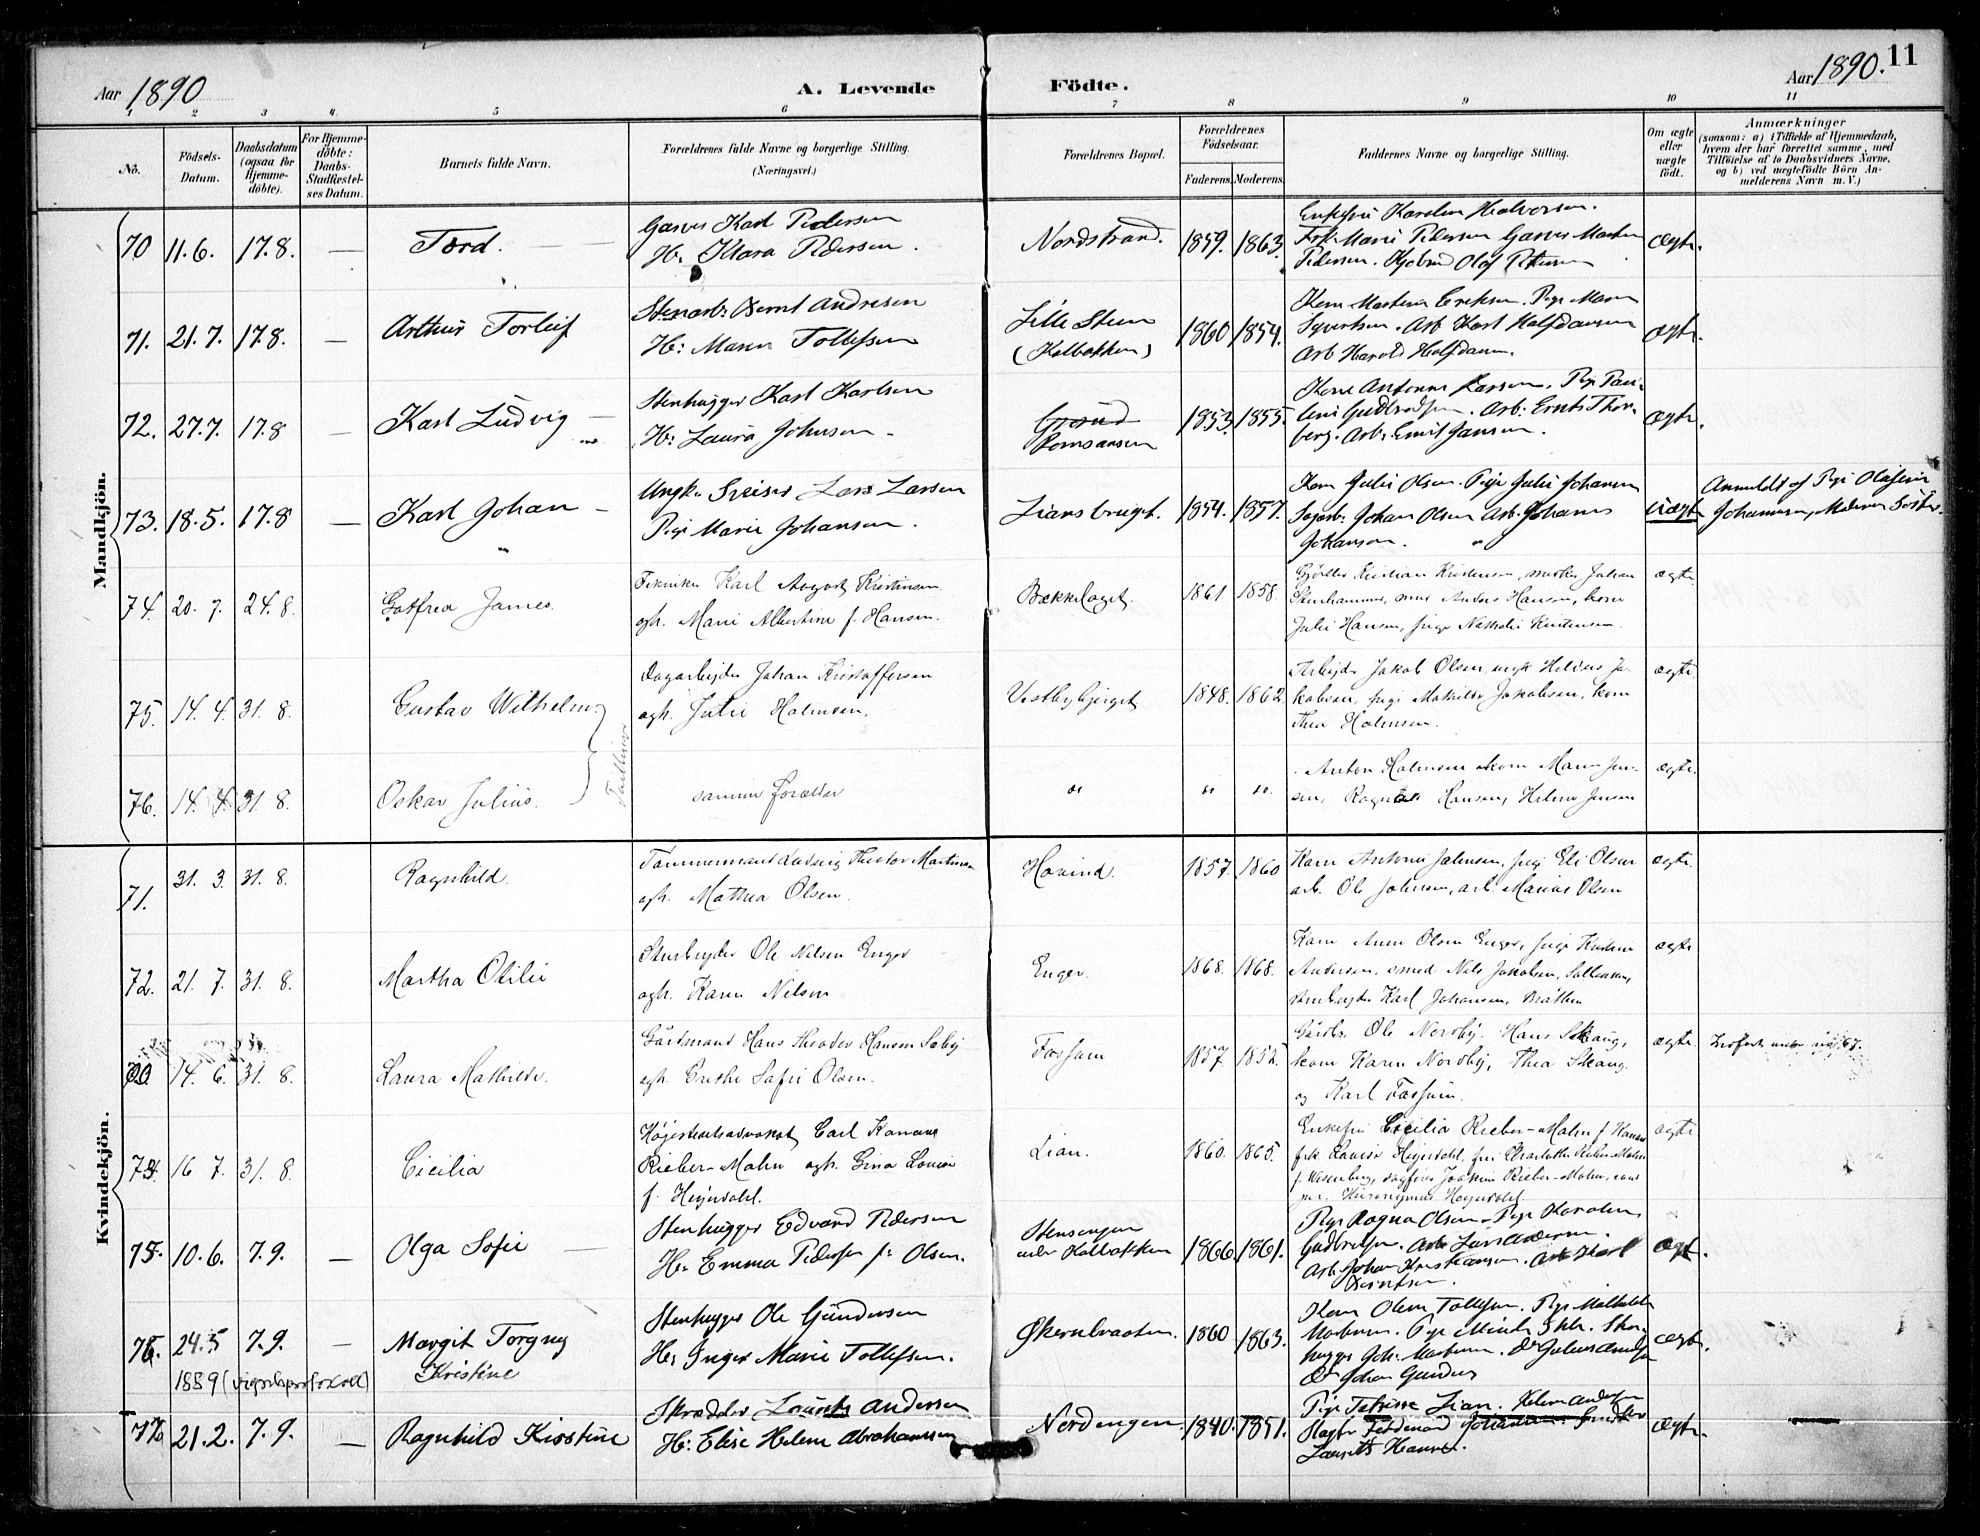 Aar 1890
A. Levende
Födte.
Aar 1890. 11
1 2 3 4 5 6 7 8 9 10 11
No.
Födsels-Datum.
Daabsdatum (ogsaa for Hjemme-döbte).
For Hjemme-döbte: Daabs-Stadfæstel-ses Datum.
Barnets fulde Navn.
Forældrenes fulde Navne og borgerlige Stilling. (Næringsvei.)
Forældrenes Bopæl.
Forældrenes Födselsaar.
Faderens. Moderens.
Faddernes Navne og borgerlige Stilling.
Om ægte eller uægte födt.
Anmærkninger
(saasom: a) i Tilfælde af Hjemmedaab,
hvem der har forrettet samme, med
Tilföielse af to Daabsvidners Navne,
og b) ved uægtefödte Börn An-
melderens Navn m. V.)
Mandkjön.
70 11.6. 17.8. — Tord. Garver Karl Pedersen
H: Klara Pedersen. Nordstrand. 1859. 1863. Enkefru Karoline Halvorsen.
Frk. Marie Pedersen Garver
Pedersen. Olaf Petersen ægte.
71. 21.7. 17.8. — Arthur Torleif Stenarb: Bernt Andresen
H: Maren Tollefsen Lille Steen
(Kalbakken) 1860 1854. Kone Martine Eriksen. Pige Maren
Syvertsen. Arb Karl Halfdansen
Arb Harald Halfdansen. ægte.
72. 27.7. 17.8 — Karl Ludvig — Stenhugger Karl Karlsen
H: Laura Johnsen. Grorud
Romsaasen 1853. 1855. Kone Antonne Larsen. Pige Pau-
line Gudbrandsen. Arb: Ernst Thor-
berg. Arb: Emil Jansen. ægte.
73. 18.5. 17.8 — Karl Johan — Ungk. Lars Larsen
Pige Marie Johansen. Liansbruget. 1854. 1857. Kone Julie Olsen. Pige Julie Johansen
Sagarb: Johan Olsen Arb. Johannes
Johanson. uægte Anmeldt af Pige Olefine
Johannesen, Moderens Søster.
74. 20.7. 24.8. Gotfred James. Tekniker Karl August Kristinsen
ogh. Marie Albertine f. Hansen. Bækkelaget. 1861. 1858. Kristian Kristensen, Johan
Stenhammer, Anders Hansen, kone
Julie Hansen, pige Nathalie Kristensen. ægte
75. 14.4. 31.8. Gustav Wilhelm Dagarbejder Johan Kristoffersen
ogh. Julie Halmsen. Vestbybjerget 1848. 1862. Arbejder Jakob Olsen, ungk Helius Ja-
kobsen, pige Mathilde Jakobsen, kone
Thea Holmsen. ægte
Tvillinger
76. 14.4. 31.8. Oskar Julius. samme Foræller " " " Anton Holmsen, kone Maren Jen-
sen, Hansen, Helene Jensen ægte.
Kvindekjön.
71. 31.3. 31.8. Ragnhild. Tømmermand Ludvig Theodor Martinsen
ogh. Mathea Olsen. Hovind. 1857. 1860 Kone Antonie Johnsen, pige Eli Olsen
arb. Ole Johnsen, arb. Marius Olsen ægte
72. 21.7. 31.8. Martha Otilie Stenbryder Ole Nilsen Enger
ogh. Karen Nilsen Enger. 1868. 1868. Kone Anne Olsen Enger, pige
Andersen, smed Nils Jakobsen,
stenbryder Karl Johansen, Bråthen ægte
14.6. 31.8. Laura Mathilde. Gårdmand Hans Theodor Hansen
ogh. Grethe Sofie Olsen. Fossum 1857. 1852. Gårdbr. Ole Nordby, Hans Skaug,
kone Karen Nordby, Thea Skaug
og Karl Fossum. ægte.
16.7. 31.8 Cicilia Højesteretsadvokat Carl
Rieber-Mohn ogh. Gina Louise
f. Heyerdahl. Lian. 1860. 1865. Enkefru Cicilia Rieber-Mohn f.
frk Louise Heyerdahl, fru Charlotte Rieber-Mohn
f. Wesenberg, sagfører Joakim Rieber-Mohn,
Hieronymus Heyerdahl. ægte
75. 10.6. 7.9. — Olga Sofie — Stenhugger Edvard Pedersen
H: Emma Pedersen f: Olsen. Stensengen
under Kalbakken 1866. 1861. Pige Ragna Olsen. Pige Karoline
Gudbrandsen. Arb Lars Andersen.
Arb. Johan Kristiansen. Arb Karl
ægte.
76. 24.5 7.9. — Margit Torgny
1889 (vigselsprotocoll) Kristine Stenhugger Ole Gundersen
H: Inger Marie Tollefsen. Økernbraaten. 1860 1863. Kone Oline Tollefsen. Pige Mathilde
Pige
Johan Gundersen ægte.
77 21.2. 7.9. — Ragnhild Kirstine Skrædder Laurits Andersen
H: Elise Helene Abrahamsen Nordengen 1840. 1851. Pige Petrine Lian. Helene Andersen
Ferdinand
Laurits Hansen. ægte.